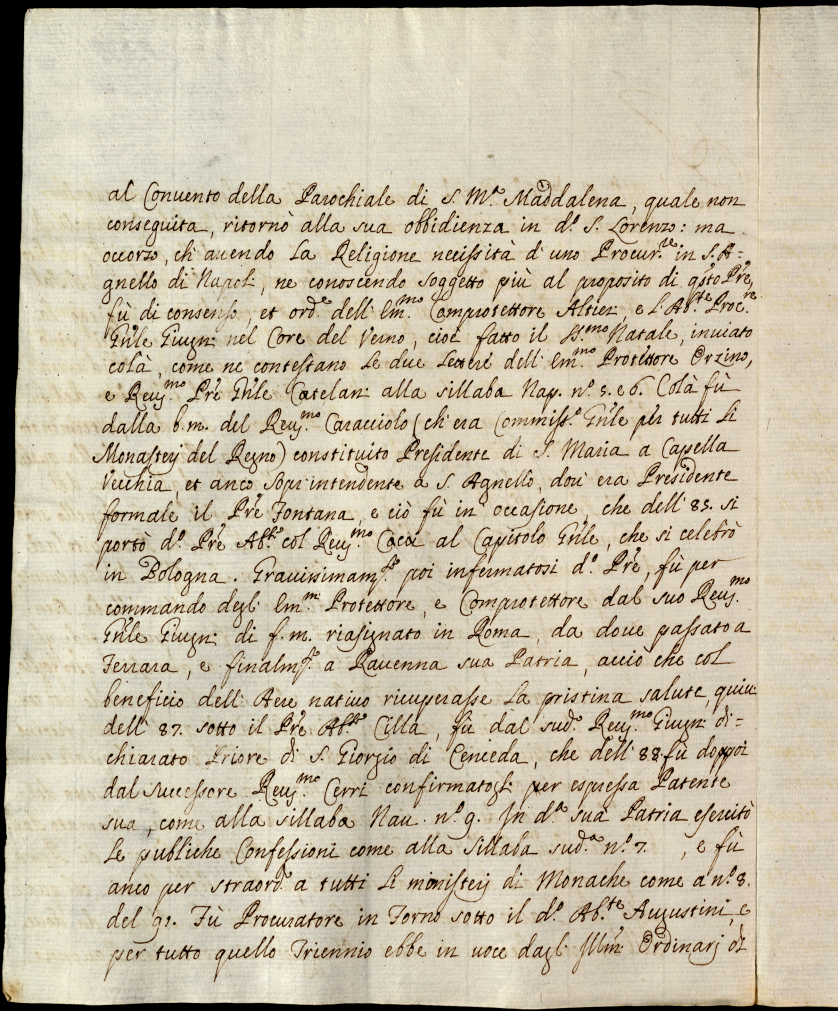 al Convento della Parochiale di S. M.ª Maddalena, quale non
conseguita, ritornò alla sua obbidienza in d.º S. Lorenzo: ma
occorzo, ch'auendo la Religione necissità d'uno Procur.re in S. A=
gnello di Napoli, ne conoscendo soggetto più al proposito di q̃sto Prẽ,
fù di consenso, et ord.e dell'Em.mo Comprotettore Altier, e l'Ab.te Proc.re
Gñle Giugn: nel Core del Verno, cioè fatto il SS.mo Natale, inuiato
colà, come ne contestano le due lettere dell'Em.mo Protettore Orzino,
e Reuj.mo Prẽ Gñle Catelan: alla sillaba Nap. n.º 5. e 6. Colà fù
dalla b.m. del Reuj.mo Caracciolo (ch'era Commiss.º Gñle per tutti li
Monasterj del Regno) constituito Presidente di S. Maria a Capella
Vecchia, et anco Sopr'intendente a S. Agnello, dou'era Presidente
formale il Prẽ Fontana, e ciò fù in occasione, che dell'85. si
portò d.º Prẽ Ab.te col Reuj.mo Caca al Capitolo Gñle, che si celebrò
in Bologna. Grauissimam.te poi infermatosi d.º Prẽ, fù per
commando degl'Em.mi Protettore, e Comprotettore dal suo Reuj.mo
Gñle Giugn: di f.m. riasignato in Roma, da doue passato a
Ferrara, e finalm.te a Rauenna sua Patria, acciò che col
beneficio dell'Aere natiuo ricuperasse la pristina salute, quiui
dell'87. sotto il Prẽ Ab.te Cilla, fù dal sud.º Reuj.mo Giugn: di=
chiarato Priore di S. Giorgio di Cenceda, che dell'88. fù doppoi
dal successore Reuj.mo Cerri confirmatogli per espressa Patente
sua, come alla sillaba Rau. n.º 9. In d.ª sua Patria esercitò
le publiche Confessioni come alla Sillaba sud.ª n.º 7. , e fù
anco per straord.º a tutti li monisterij di Monache come a n.º 8.
del 91. Fù Procuratore in Torno sotto il d.º Ab.te Augustini, e
per tutto quello Triennio ebbe in uoce dagl'Illm̃: Ordinarj di